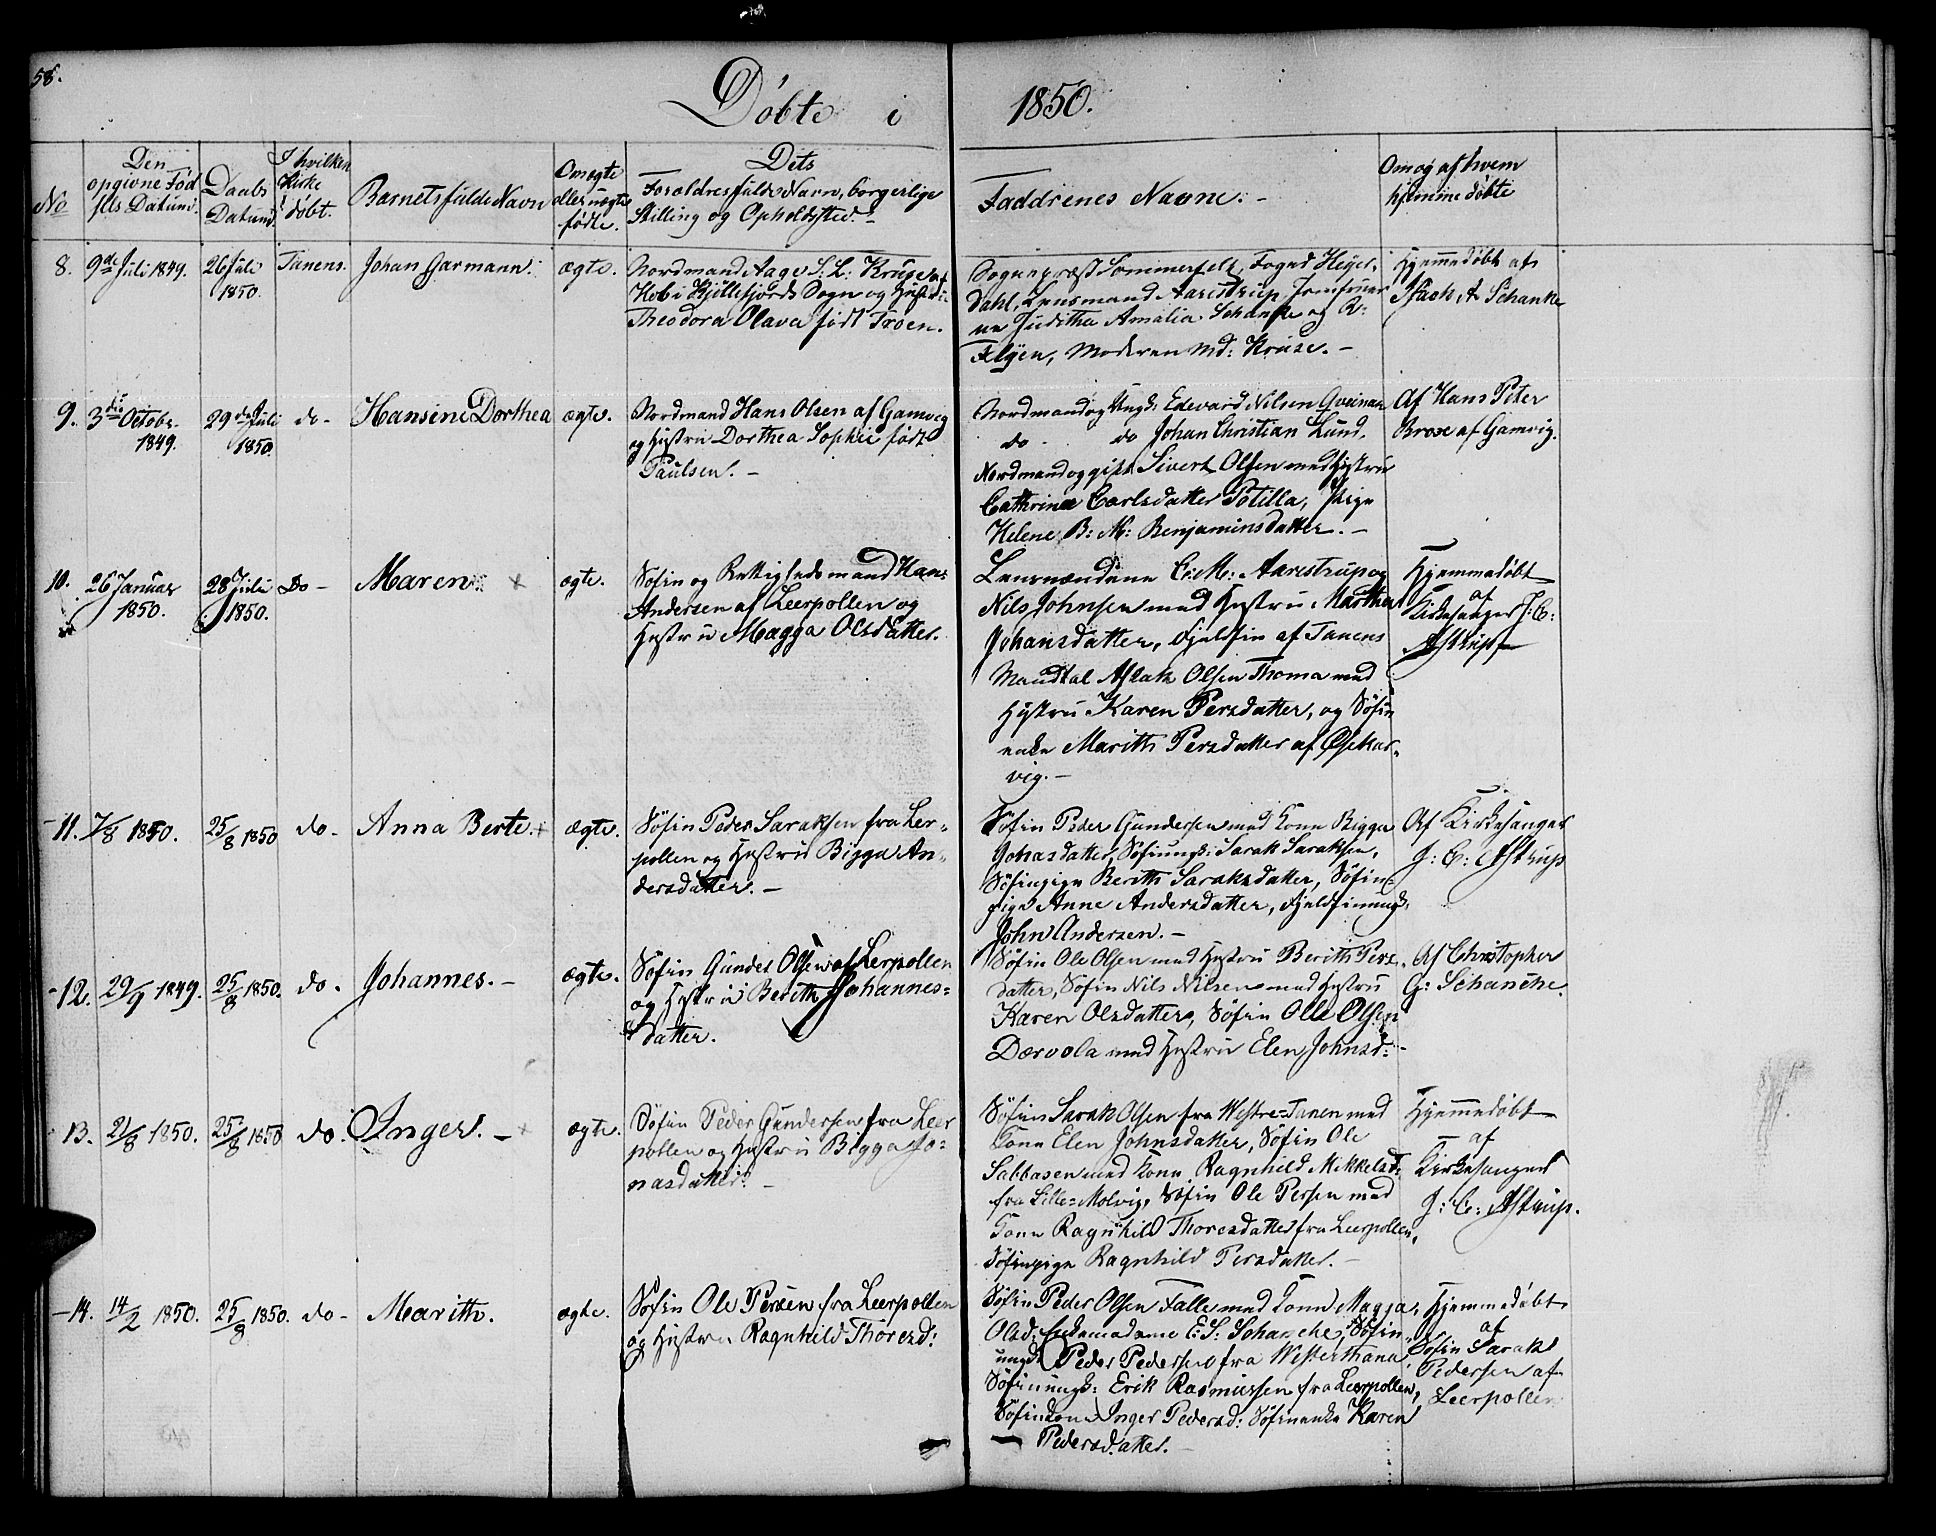 58.
Døbte i 1850.
No
Den opgivne Fødsels Datum.
Daabs Datum.
I hvilken Kirke døbt.
Barnets fulde Navn
Om ægte eller uægte fødte.
Dets Forældres fulde Navn, borgerlige Stilling og Opholdssted.-
Faddrenes Navne.-
Om og af hvem hjemmedøbte
8.
9de Juli 1849.
26 Juli
1850.
Tanens.
Johan Garmann.
ægte.
Nordmand Aage S: L: Kruse af
Kob i Kjøllefjords Sogn og Hustru
Theodora Olava født Troen.
Sognepræst Sommerfelt, Foged Heyer-
dahl, Lensmand Aarestrup, Jomfruer
ne Juditha Amalia Schanke og R:
Felyen, Moderen Md: Kruse.-
Hjemmedøbt af
Isach A Schanke
9.
3die Octobr.
1849.
29de Juli
1850.
do-
Hansine Dorthea
ægte.
Nordmand Hans Olsen af Gamvig
og Hustru Dorthea Sophie født
Paulsen.-
Nordmand og Ungk: Edevard Nilsen Qveinan
do- do Johan Christian Lund,
Nordmand og gift Sivert Olsen med Hustru
Cathrine Carlsdatter Potilla, Pige
Helene B: M: Benjaminsdatter.-
Af Hans Peter
Brose af Gamvig.
10.
26 Januar
1850.
28 Juli
1850.
Do-
Maren.
ægte.
Søfin og Rettighedsmand Hans
Andersen af Leerpollen og
Hustru Magga Olsdatter.
Lensmændene C: M: Aarestrup og
Nils Johnsen med Hustru Marthe
Johansdatter, Fjeldfin af Tanens
Mandtal Aslak Olsen Thoma med
Hustru Karen Persdatter, og Søfin
enke Marith Persdatter af
vig.-
Hjemmedøbt
af
Kirkesanger J: C:
Astrup
11.
7/8 1850.
25/8 1850
do-
Anna Berte.
ægte.
Søfin Peder Saraksen fra Ler-
pollen og Hustru Bigga An-
dersdatter.-
Søfin Peder Gundersen med Kone Bigga
Johasdatter, Søfinungk: Sarak Saraksen,
Søfinpige Berith Saraksdatter, Søfin-
pige Anne Andersdatter, Fjeldfinungk:
John Andersen.-
Af Kirkesanger
J: C: Astrup
12.
29/9 1849.
25/8 1850.
do.
Johannes.-
ægte.
Søfin Gunder Olsen af Lerpollen
og Hustru Berith Johannes-
datter.
Søfin Ole Olsen med Hustru Berith Pers-
datter, Søfin Nils Nilsen med Hustru
Karen Olsdatter, Søfin Ole Olsen
Dærvola med Hustru Elen Johnsd:-
Af Christopher
G: Schanche.
13.
21/8 1850.
25/8 1850
do.
Inger.-
ægte.
Søfin Peder Gundersen fra Leer
pollen og Hustru Bigga Jo-
nasdatter.-
Søfin Sarak Olsen fra Westre-Tanen med
Kone Elen Johnsdatter, Søfin Ole
Sabbasen med Kone Ragnhild Mikkelsd:
fra Lille-Molvig, Søfin Ole Persen med
Kone Ragnhild Thoresdatter fra Leerpollen,
Søfinpige Ragnhild Persdatter.-
Hjemmedøbt
af
Kirkesanger
J: C: Astrup.
14.
14/2 1850.
25/8 1850.
do-
Marith.
ægte.
Søfin Ole Persen fra Leerpollen
og Hustru Ragnhild Thoresd:
Søfin Peder Olsen Falle med Kone Magga
Olsd: Enkemadame E: S: Schanche, Søfin
ungk: Peder Pedersen fra Westerthana
Søfinungk: Erik Rasmussen fra Leerpollen,
Søfinkone Inger Pedersd: Søfinenke Karen
Pedersdatter.-
Hjemmedøbt
af
Søfin Sarak
Pedersen af
Leerpollen